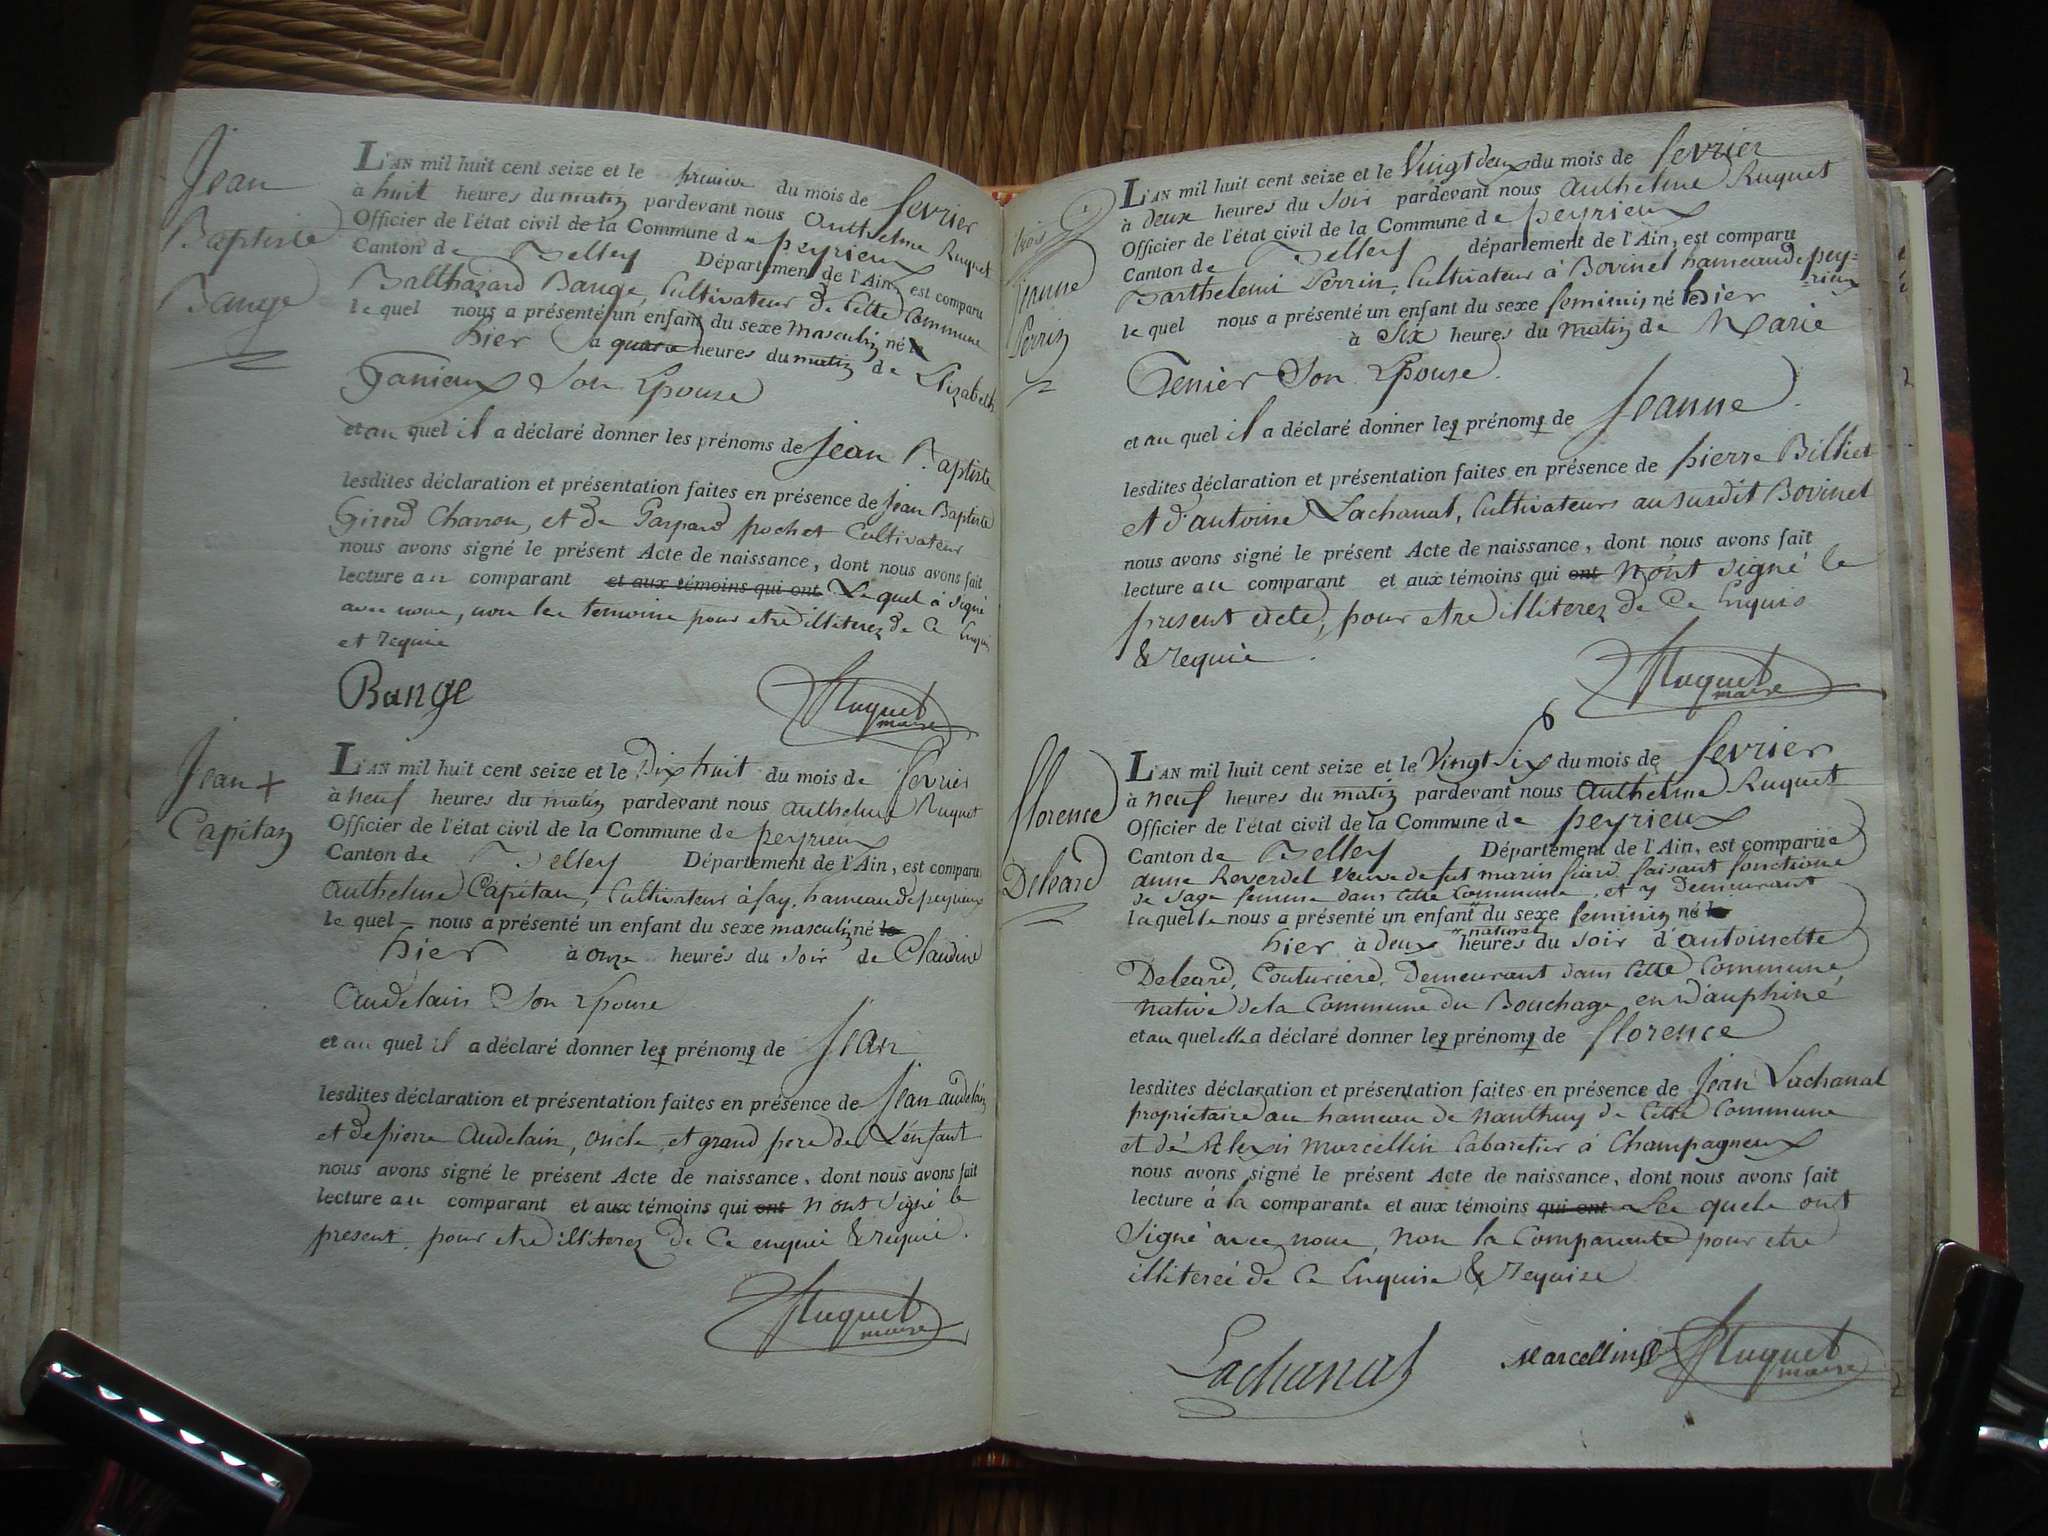 Jean
Baptiste
Bange
L'AN mil huit cent seize et le premier du mois de fevrier
à huit heures du matin pardevant nous Anthelme Ruquet
Officier de l'état civil de la Commune de peyrieux
Canton de Belley Département de l'Ain, est comparu
Balthazard Bange, Cultivateur de Cette Commune
le quel nous a présenté un enfant du sexe masculin né le
hier à quatre heures du matin de Elizabeth
Tanieux Son Epouse
et au quel il a déclaré donner les prénoms de Jean Baptiste
lesdites déclaration et présentation faites en présence de Jean Baptiste
Girord Charron, et de Gaspard pochet Cultivateur
nous avons signé le présent Acte de naissance, dont nous avons fait
lecture au comparant et aux témoins qui ont Le quel à signé
avec nous, non les temoins pour etre illiterez de Ce Enquis
et requis
Bange
Ruquet
maire
Jean +
Capitan
L'AN mil huit cent seize et le Dix huit du mois de fevrier
à neuf heures du matin pardevant nous Anthelme Ruquet
Officier de l'état civil de la Commune de peyrieux
Canton de Belley Département de l'Ain, est comparu
Anthelme Capitan, Cultivateur à fay, hameau de peyrieux
le quel nous a présenté un enfant du sexe masculin né le
hier à onze heures du soir de Claudine
Audelain Son Epouse
et au quel il a déclaré donner les prénoms de Jean
lesdites déclaration et présentation faites en présence de Jean audelain
et de pierre Audelain, oncle, et grand pere de L'enfant
nous avons signé le présent Acte de naissance, dont nous avons fait
lecture au comparant et aux témoins qui ont n'ont signé le
present pour etre illiterez de Ce enquis & requis.
Ruquet
maire
Jeanne
Perrin
L'AN mil huit cent seize et le Vingt deux du mois de fevrier
à deux heures du soir pardevant nous Anthelme Ruquet
Officier de l'état civil de la Commune de peyrieux
Canton de Belley département de l'Ain, est comparu
Barthelemi Perrin, Cultivateur à Bovinel hameau de pey=
rieux
le quel nous a présenté un enfant du sexe feminin né le hier
à Six heures du matin de Marie
Tenier Son Epouse.
et au quel il a déclaré donner les prénoms de Jeanne
lesdites déclaration et présentation faites en présence de pierre Billiet
et d'antoine Lachanal, Cultivateurs au susdit Bovinel
nous avons signé le présent Acte de naissance, dont nous avons fait
lecture au comparant et aux témoins qui ont N'ont signé le
present acte, pour etre illiterez de Ce Enquis
& requis.
Ruquet
maire
florence
Deleard
L'AN mil huit cent seize et le Vingt Six du mois de fevrier
à neuf heures du matin pardevant nous Anthelme Ruquet
Officier de l'état civil de la Commune de peyrieux
Canton de Belley Département de l'Ain, est comparue
anne Reverdel Veuve de fut marin faisant fonctions
de Sage femme dans Cette Commune, et y Demeurant
la quelle nous a présenté un enfant du sexe feminin né le
naturel
hier à deux heures du soir d'antoinette
Deleard, Couturiere, Demeurant dans Cette Commune,
native de la Commune du Bouchage, en Dauphiné
et au quel elle a déclaré donner les prénoms de florence
lesdites déclaration et présentation faites en présence de Jean Lachanal
propriétaire au hameau de nanthuy de Cette Commune
et de Alexis Marcellin Cabaretier à Champagneux
nous avons signé le présent Acte de naissance, dont nous avons fait
lecture à la comparante et aux témoins qui ont Les quels ont
signé avec nous, non la Comparante pour etre
illiterée de Ce Enquise & requise
Lachanal
Marcellin
Ruquet
maire